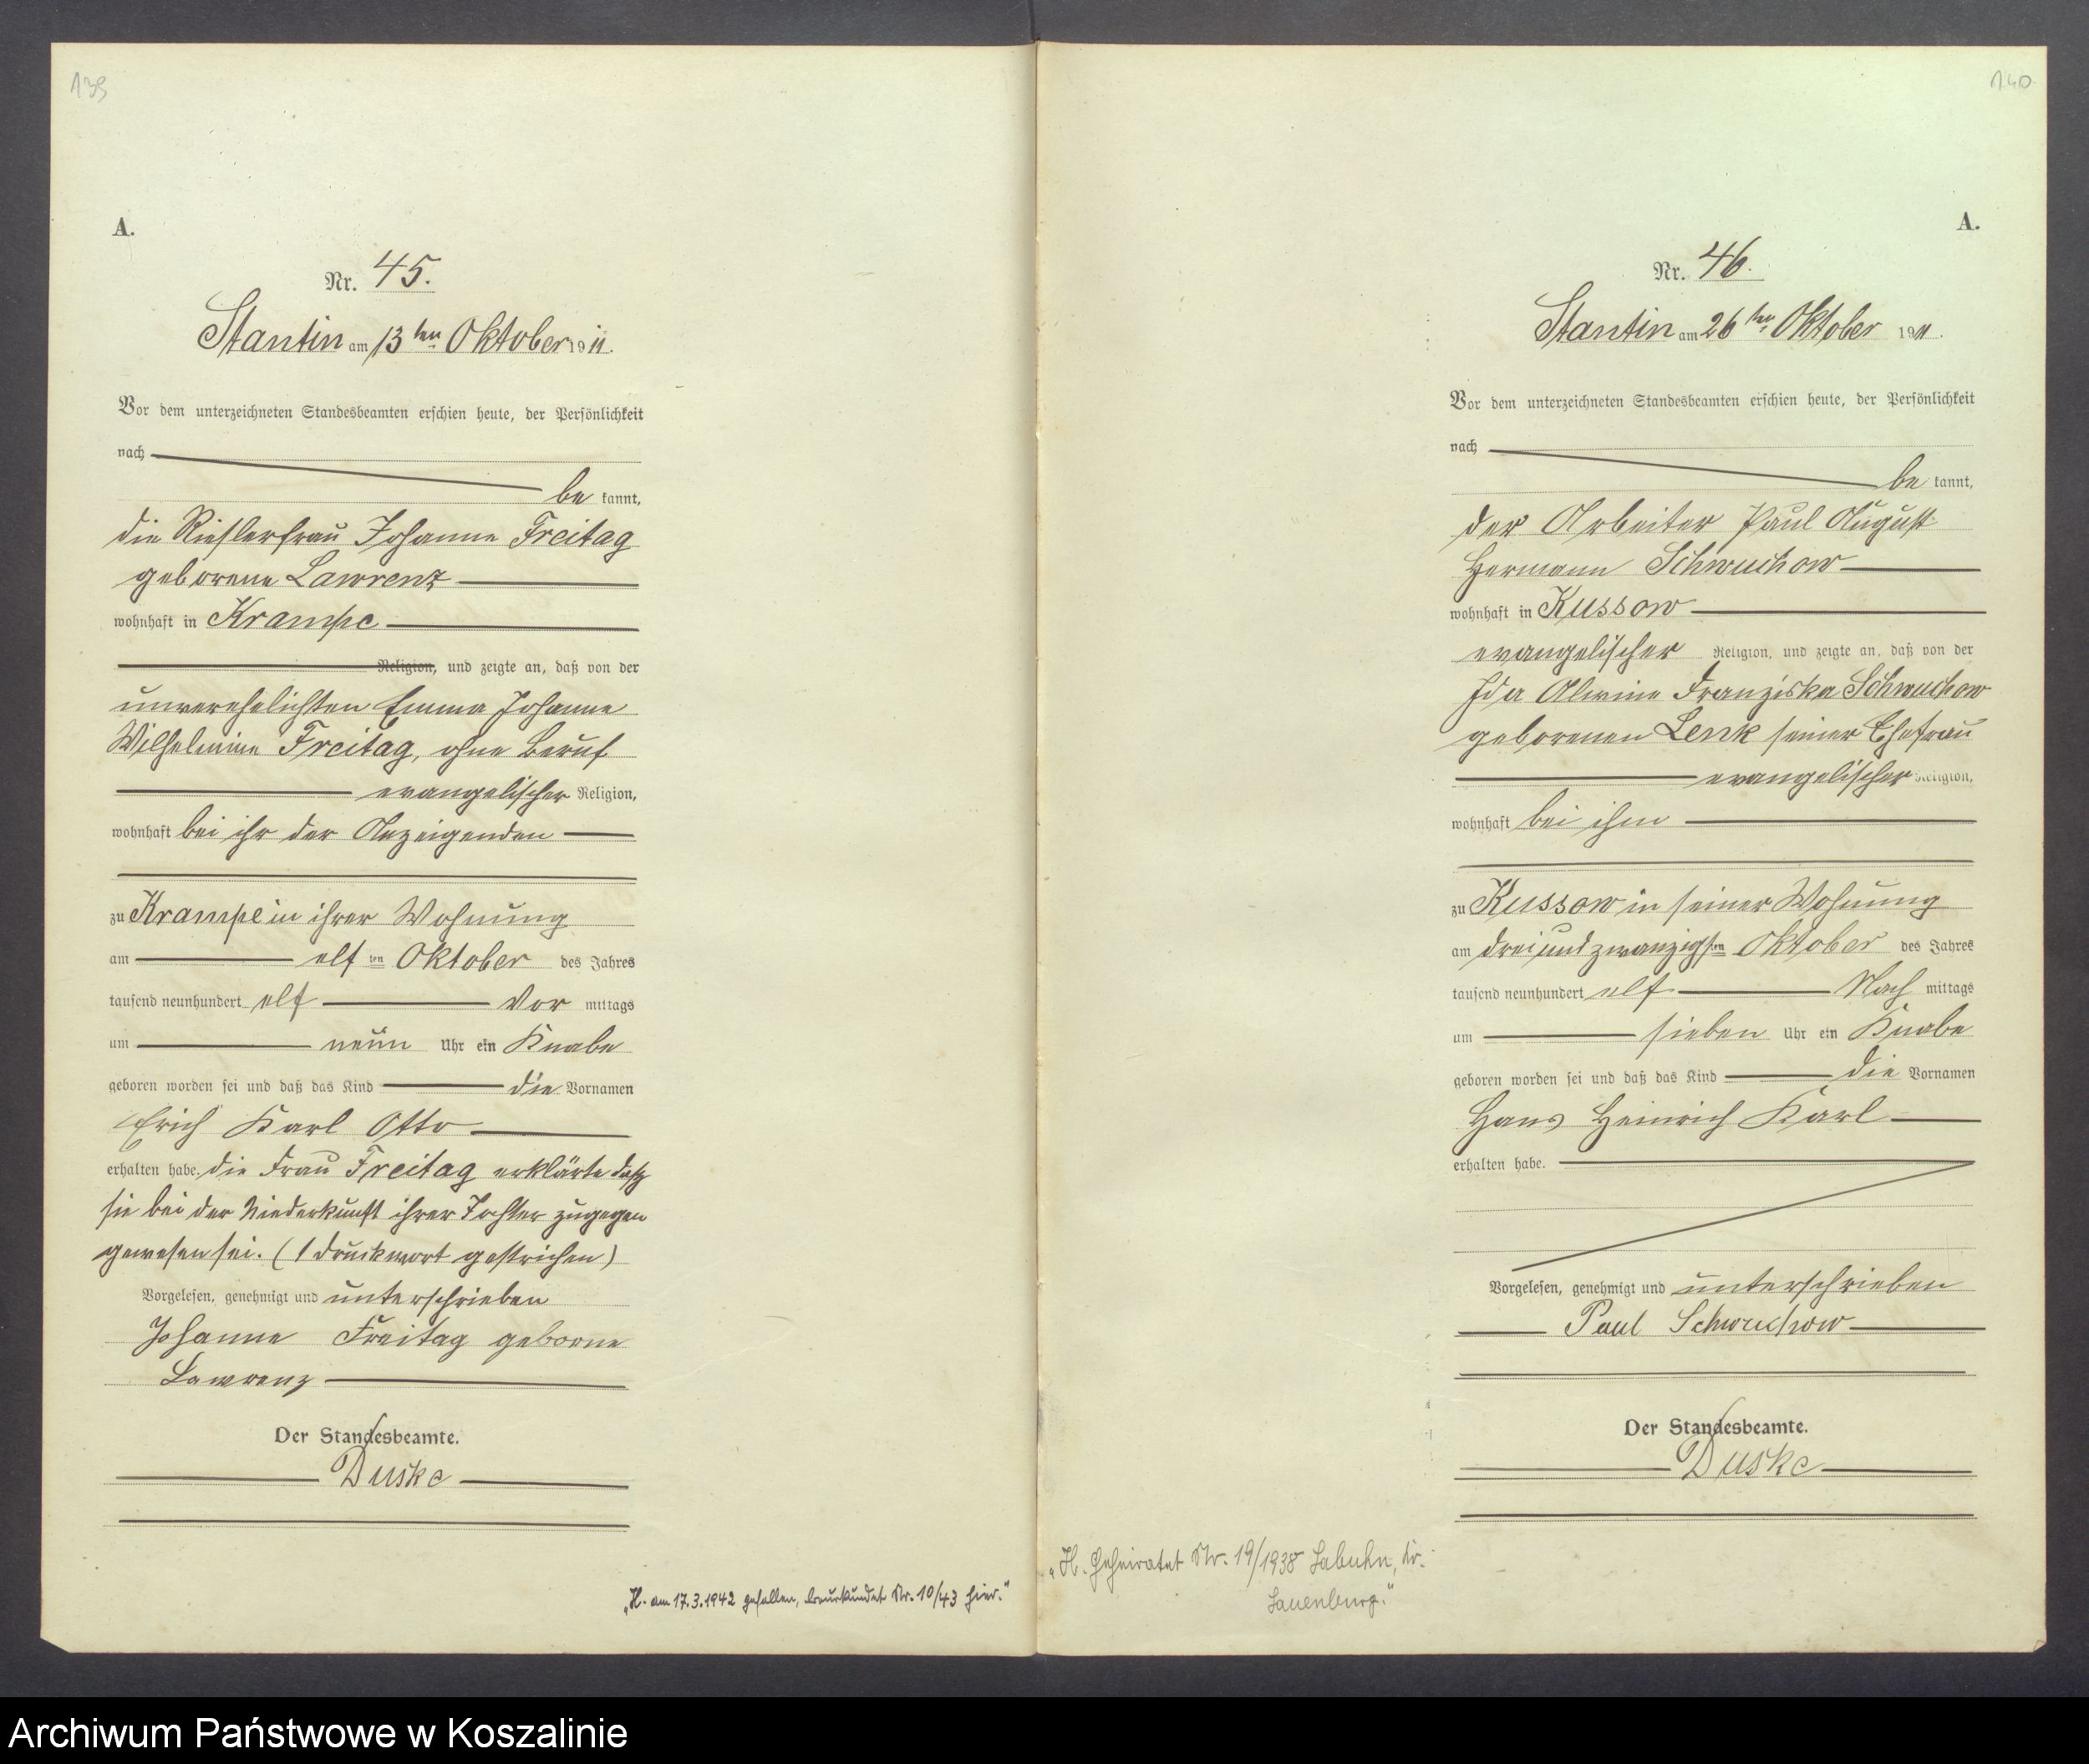 139
A.
Nr. 45.
Stantin am 13ten Oktober 1911.
Vor dem unterzeichneten Standesbeamten erschien heute, der Persönlichkeit
nach
be kannt,
die Rieslerfrau Johanne Freitag
geborene Lawrenz
wohnhaft in Krampe
Religion, und zeigte an, daß von der
unverehelichten Emma Johanne
Wilhelmine Freitag, ohne Beruf
evangelischer Religion,
wohnhaft bei ihr der Anzeigenden
zu Krampe in ihrer Wohnung
am elf ten Oktober des Jahres
tausend neunhundert elf Vor mittags
um neun Uhr ein Knabe
geboren worden sei und daß das Kind die Vornamen
Erich Karl Otto
erhalten habe. die Frau Freitag erklärte daß
sie bei der Niederkunft ihrer Tochter zugegen
gewesen sei. (1 Druckwort gestrichen)
Vorgelesen, genehmigt und unterschrieben
Johanne Freitag geborne
Lawrenz
Der Standesbeamte.
Duske
„H. am 17.3.1942 gefallen, beurkundet Nr. 10/43 hier."
140
A.
Nr. 46.
Stantin am 26ten Oktober 1911.
Vor dem unterzeichneten Standesbeamten erschien heute, der Persönlichkeit
nach
be kannt,
der Arbeiter Paul August
Hermann Schwuchow
wohnhaft in Kussow
evangelischer Religion, und zeigte an, daß von der
Ida Alwine Franziska Schwuchow
geborenen Lenk seiner Ehefrau
evangelischer Religion,
wohnhaft bei ihm
zu Kussow in seiner Wohnung
am dreiundzwanzigsten Oktober des Jahres
tausend neunhundert elf Nach mittags
um sieben Uhr ein Knabe
geboren worden sei und daß das Kind die Vornamen
Hans Heinrich Karl
erhalten habe.
Vorgelesen, genehmigt und unterschrieben
Paul Schwuchow
Der Standesbeamte.
Duske
„H. Geheiratet Nr. 19/1938 Labuhn, Kr.
Lauenburg."
Archiwum Państwowe w Koszalinie